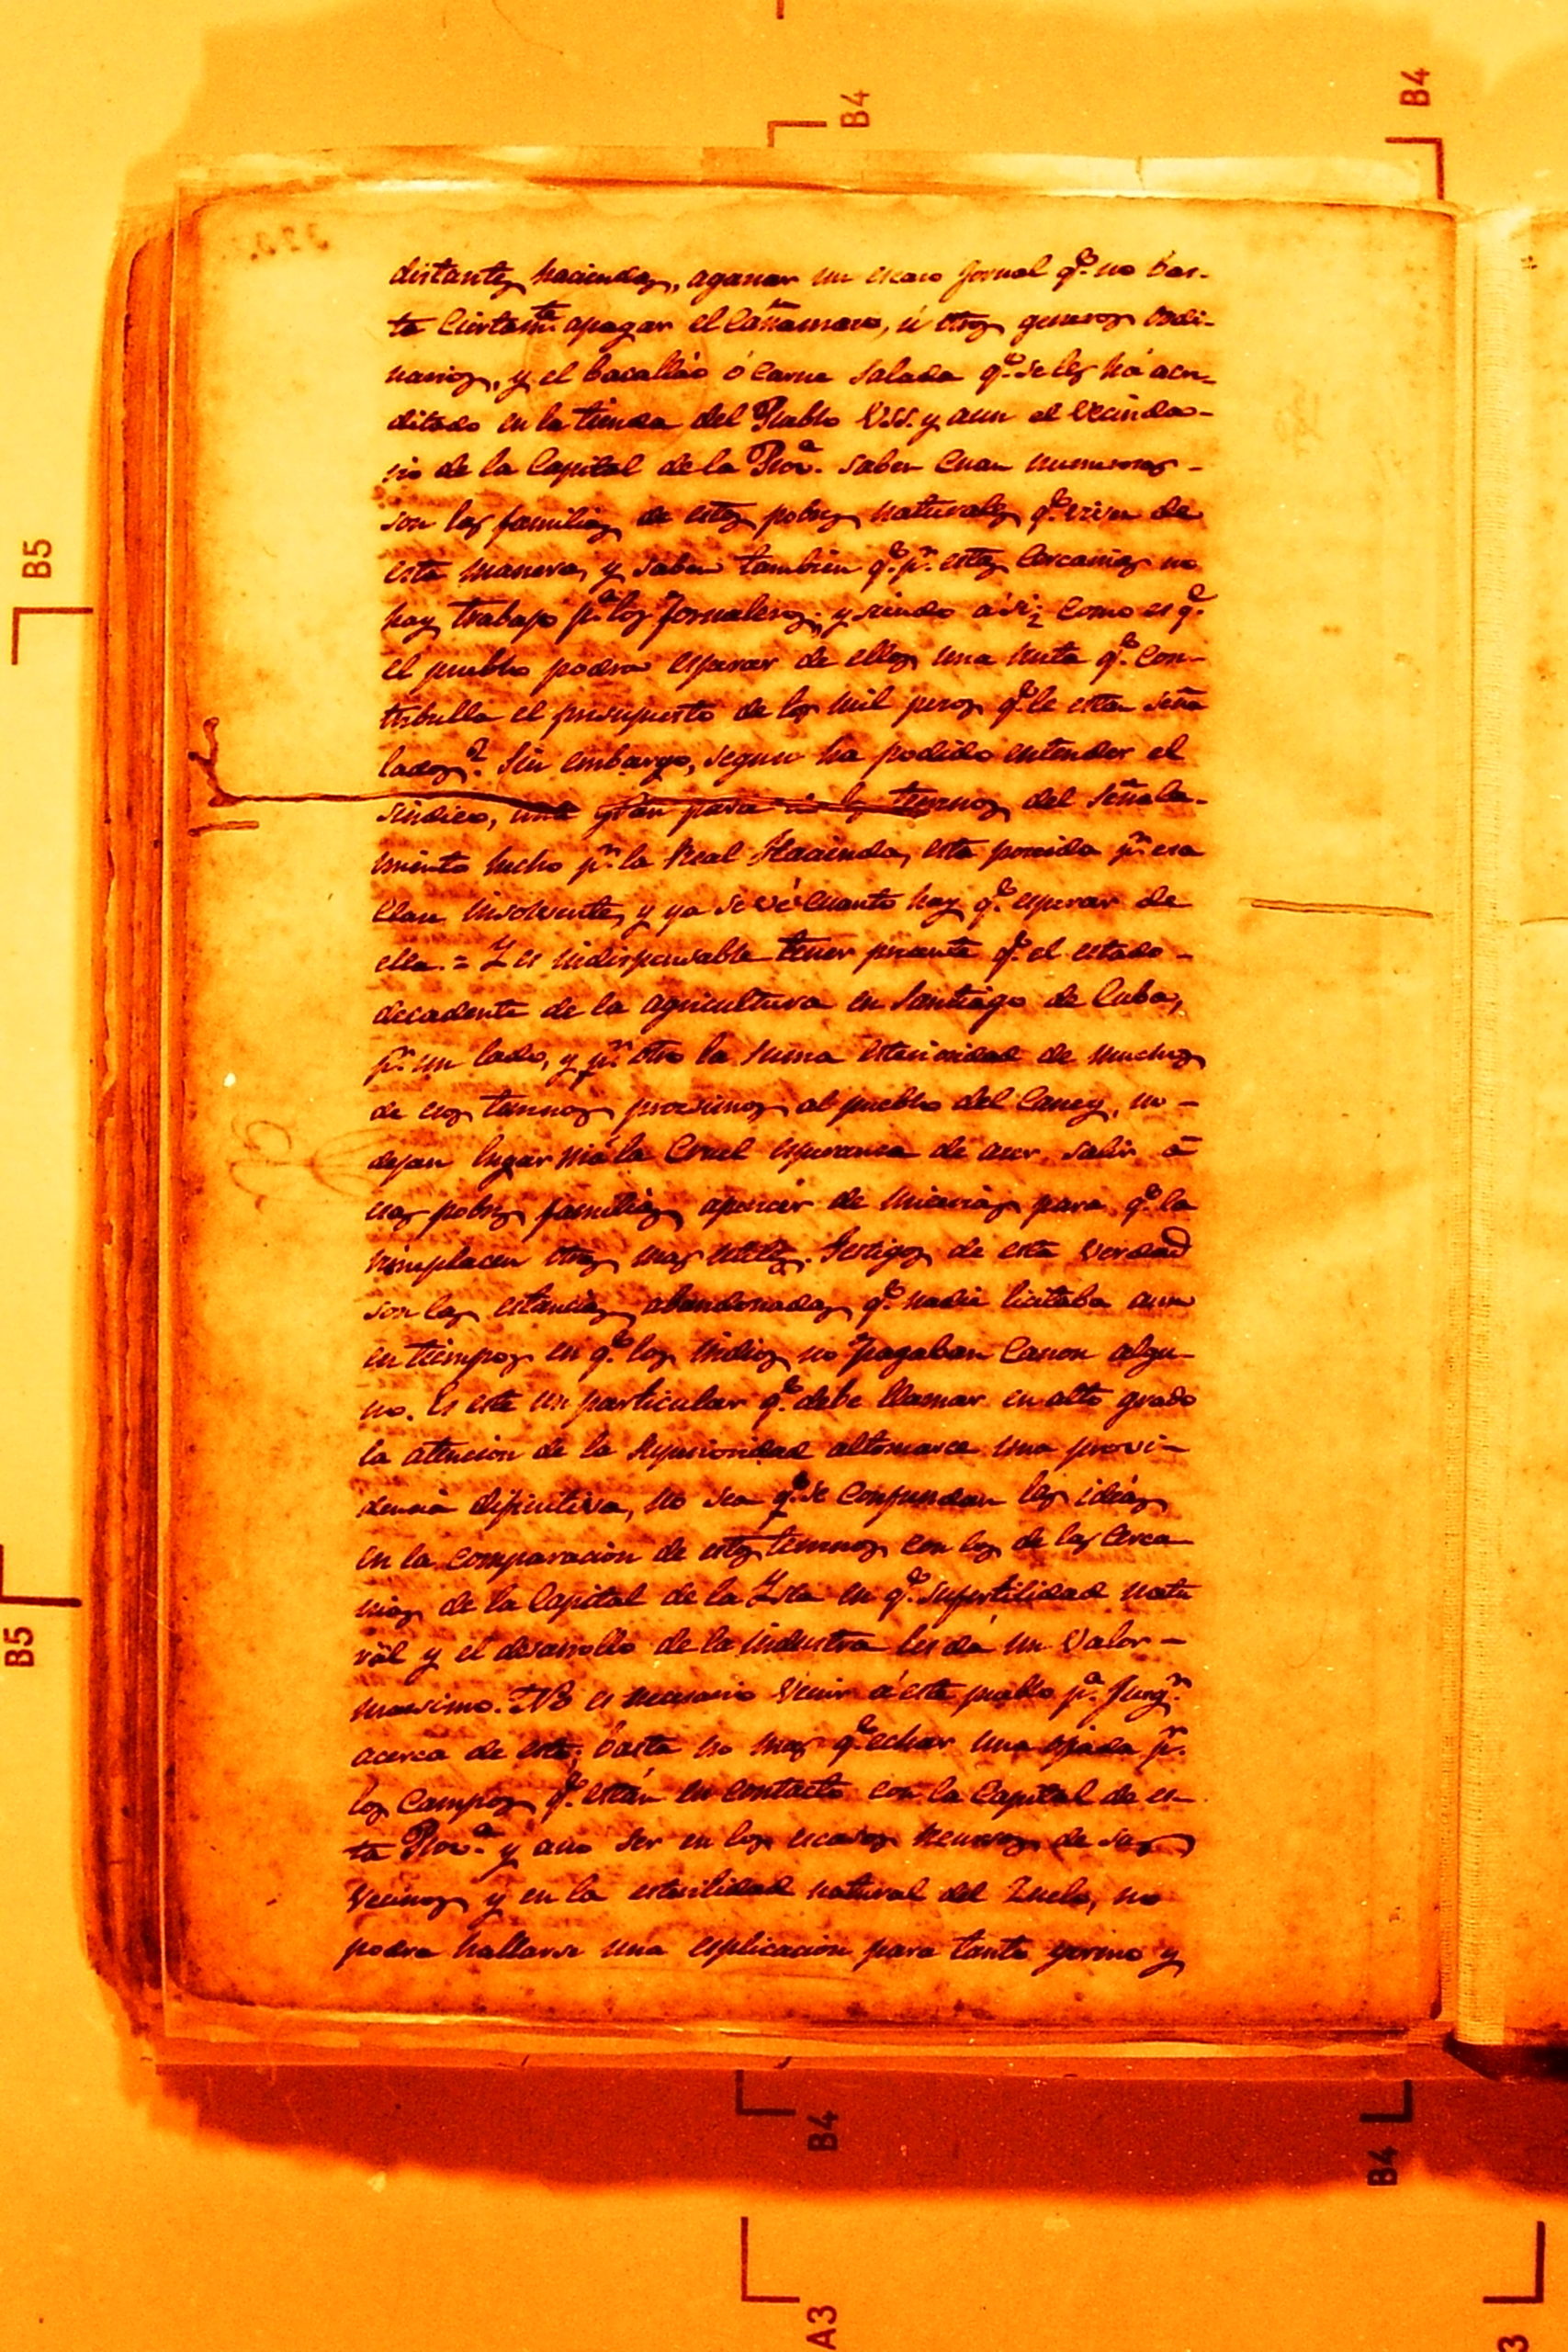 B4
B4
distantes haciendas, aganar un escaso jornal q.e no bas-
ta Ciertam.te apagar el Cañamaso, ú otros generos ordi-
narios, y el bacallao ó Carne Salada q.e se les há acre-
ditado en la tienda del Pueblo VSS. y aun el Vecinda-
rio de la Capital de la Prov.a saben Cuan numerosas -
son las familias de estos pobres naturales q.e viven de
esta manera, y saben tambien q.e p.r estas Cercanias no
hay trabajo p.a los Jornaleros; y siendo asi; Como es q.e
el pueblo podra esperar de ellos una renta q.e Con-
tribulla el presupuesto de los mil pesos q.e le estan seña
lados? Sin embargo, segun ha podido entender el
sindico, una gran parte de los terrenos del señala-
miento hecho p.r la Real Hacienda, esta poseida p.r esa
Clase insolvente, y ya se vé Cuanto hay q.e esperar de
ella. = Y es indispensable tener presente q.e el estado -
decadente de la agricultura en Santiago de Cuba,
p.r un lado, y p.r otro la suma esterioridad de muchos
de esos terrenos proximos al pueblo del Caney, no -
dejan lugar niá la Cruel esperanza de acer salir á
esas pobres familias aperecer de miserias para q.e la
remplacen otras mas utiles. Testigos de esta verdad
son las estancias abandonadas q.e nadie licitaba aun
en tiempos en q.e los Indios no pagaban Canon algu-
no. Es este un particular q.e debe llamar en alto grado
la atencion de la Superioridad altomarce una provi-
dencia difinitiva, no sea q.e se Confundan las ideas
en la Comparacion de estos terrenos con los de las Cerca
nias de la Capital de la Isla en q.e sufertilidad natu
ral y el desarrollo de la industria les dá un Valor -
maximo. No es necesario Venir á este pueblo p.a Juzg.r
acerca de esto; basta no mas q.e echar una ojeada p.r
los Campos q.e están en contacto con la Capital de es-
ta Prov.a y ano ser en los escasos recursos de sus
Vecinos y en la esterilidad natural del Zuelo, no
podra hallarse una esplicacion para tanto yermo y
B5
B5
B4
B4
A3
3